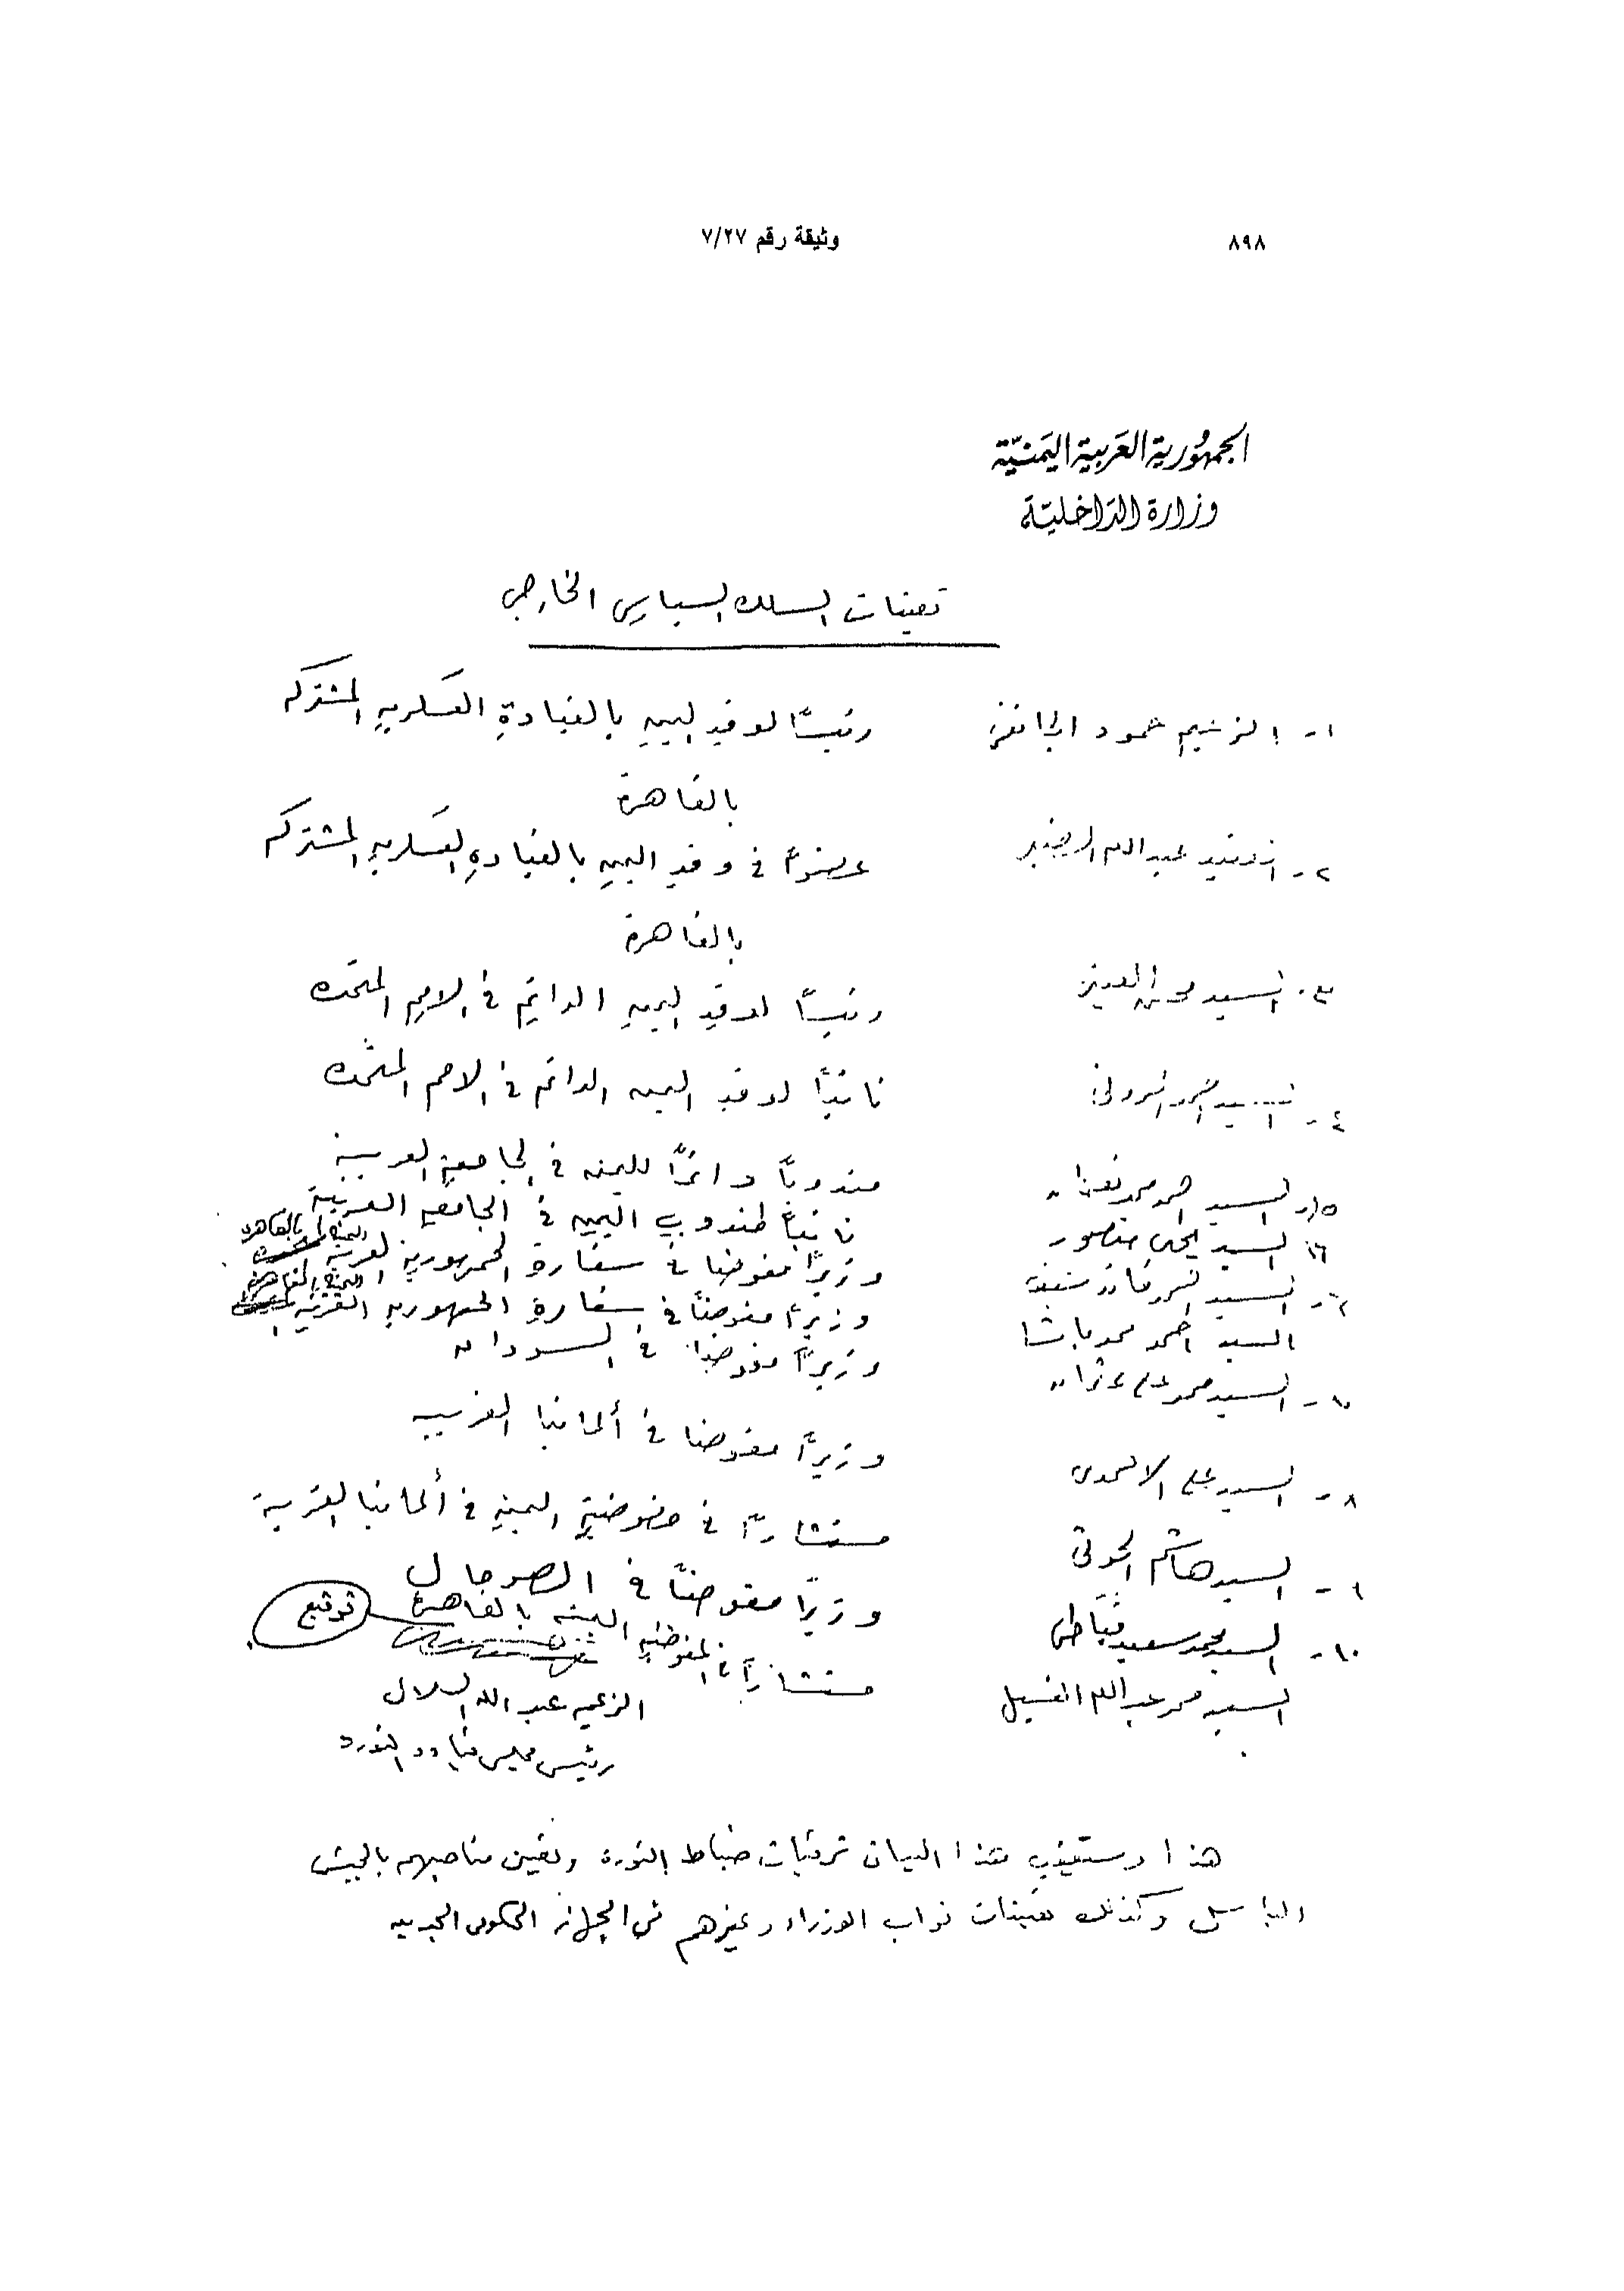 ٨٩٨
وثيقة رقم ٧/٢٧
الجمهورية العربية اليمنية
وزارة الداخلية
تعينات السلك السياسي الخارجي
١- الزعيم حمود الجائفي رئيسًا لوفد اليمن بالقيادة العسكرية المشتركه
بالقاهرة
٢- عبد الله الضبي عضوًا في وفد اليمن بالقيادة العسكريه المشتركه
بالقاهرة
٣- السيد محسن العيني رئيسًا لوفد اليمن الدائم في الامم المتحده
٤- السيد نائبًا لوفد اليمن الدائم في الامم المتحده
٥- السيد احمد محمد نعمان مندوبًا دائمًا لليمن في الجامعة العربية
٦- السيد يحي منصور نائبًا لمندوب اليمن في الجامعه العربية
السيد وزيرًا مفوضا في سفارة الجمهورية العربية اليمنية بالقاهره
السيد احمد محمد باشا وزيرًا مفوضًا في سفارة الجمهورية العربية اليمنية بالقاهرة
٧- السيد محمد علي عثمان وزيرًا مفوضًا في السودان
٨- السيد علي الاحمدي وزيرًا مفوضا في ألمانيا الغربيه
٩- السيد هاشم الحوثي مستشارًا في مفوضية اليمن في ألمانيا الغربية
١٠- السيد محمد سعيد قباطي وزيرًا مفوضًا في الصومال
السيد محمد عبد الله الفسيل مستشارًا في المفوضيه اليمنيه بالقاهرة
توقيع
الزعيم عبد الله السلال
رئيس مجلس قيادة الثورة
هذا وستعقب هذا البيان ترقيات ضباط الثورة وتعين مناصبهم بالجيش
الباسل وكذلك تعينات نواب الوزراء وغيرهم في الجهاز الحكومي الجديد